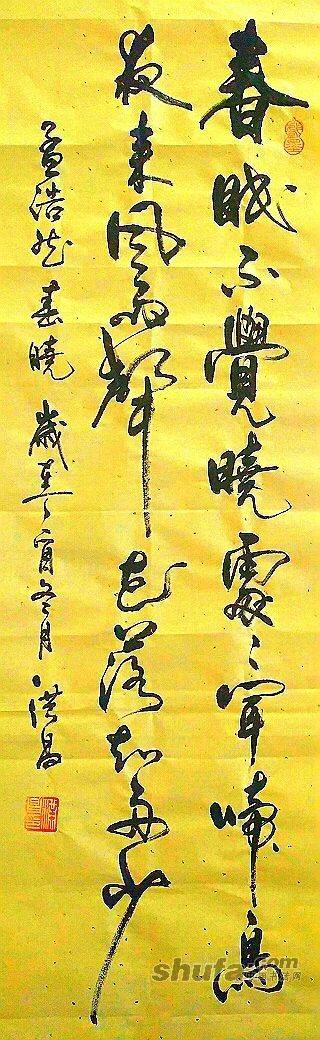 春眠不覺曉處〻聞啼鳥
夜來風雨聲花落知多少
孟浩然春曉 歲在寅冬月 洪昌
shufa.com